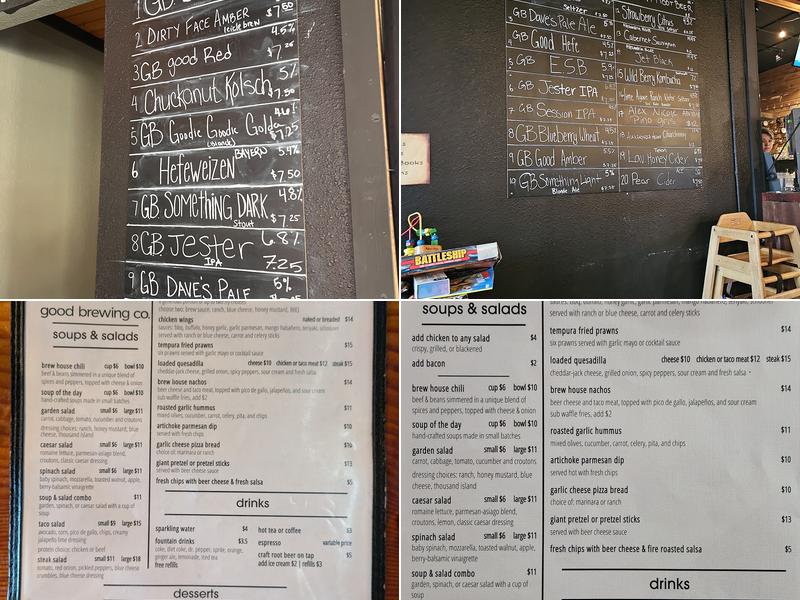 GB
$7.50
2 DIRTY FACE AMBER
4.5%
3 GB good Red
$7.25
5%
4 Chuckanut Kolsch
$7.50
5 GB Goodie Goodie Golda
(Blonde)
$7.25
6 Hefeweizen
BAYERS 5.4%
$7.50
4.8%
7 GB SOMETHING DARK
Stout
$7.25
8 GB JESTER 6.8%
IPA
7.25
9 GB DAVE'S PALE
5%
SELTZER
GB Dave's Pale Ale 5%
4 GB Good Hefe
5 GB E.S.B
6 GB Jester IPA
7 GB Session IPA
8 GB Blueberry Wheat
9 GB Good Amber
10 GB Something Light 5%
Blonde Ale
Strawberry Citrus
Cabernet Sauvignon
Jet Black
15 Wild Berry Kombucha
17 Alex Nicole
Pino gris
Chardonnay
19 Low Honey Cider
20 Pear Cider
BOOKS
BATTLESHIP
good brewing co.
soups & salads
brew house chili cup $6 bowl $10
beef & beans simmered in a unique blend of
spices and peppers, topped with cheese & onion
soup of the day cup $6 bowl $10
hand-crafted soups made in small batches
garden salad small $6 large $11
carrot, cabbage, tomato, cucumber and croutons
dressing choices: ranch, honey mustard, blue
cheese, thousand island
caesar salad small $6 large $11
romaine lettuce, parmesan-asiago blend,
croutons, classic caesar dressing
spinach salad small $6 large $11
baby spinach, mozzarella, toasted walnut, apple,
berry-balsamic vinaigrette
soup & salad combo $11
garden, spinach, or caesar salad with a cup of
soup
taco salad small $9 large $15
avocado, corn, pico de gallo, chips, creamy
jalapeño lime dressing
protein choice: chicken or beef
steak salad small $11 large $18
tomato, red onion, pickled peppers, blue cheese
crumbles, blue cheese dressing
chicken wings naked or breaded $14
sauces: bbq, buffalo, honey garlic, garlic parmesan, mango habañero, teriyaki,
served with ranch or blue cheese, carrot and celery sticks
tempura fried prawns $15
six prawns served with garlic mayo or cocktail sauce
loaded quesadilla cheese $10 chicken or taco meat $12 steak $15
cheddar-jack cheese, grilled onion, spicy peppers, sour cream and fresh salsa
brew house nachos $14
beer cheese and taco meat, topped with pico de gallo, jalapeños, and sour cream
sub waffle fries, add $2
roasted garlic hummus $11
mixed olives, cucumber, carrot, celery, pita, and chips
artichoke parmesan dip $10
served with fresh chips
garlic cheese pizza bread $10
choice of: marinara or ranch
giant pretzel or pretzel sticks $13
served with beer cheese sauce
fresh chips with beer cheese & fresh salsa $5
drinks
sparkling water $4
fountain drinks $3.5
coke, diet coke, dr. pepper, sprite, orange,
ginger ale, lemonade, iced tea
free refills
hot tea or coffee $3
espresso variable price
craft root beer on tap $5
add ice cream $2 | refills $3
desserts
soups & salads
add chicken to any salad $4
crispy, grilled, or blackened
add bacon $2
brew house chili cup $6 bowl $10
beef & beans simmered in a unique blend of
spices and peppers, topped with cheese & onion
soup of the day cup $6 bowl $10
hand-crafted soups made in small batches
garden salad small $6 large $11
carrot, cabbage, tomato, cucumber and croutons
dressing choices: ranch, honey mustard, blue
cheese, thousand island
caesar salad small $6 large $11
romaine lettuce, parmesan-asiago blend,
croutons, lemon, classic caesar dressing
spinach salad small $6 large $11
baby spinach, mozzarella, toasted walnut, apple,
berry-balsamic vinaigrette
soup & salad combo $11
garden, spinach, or caesar salad with a cup of
soup
served with ranch or blue cheese, carrot and celery sticks
tempura fried prawns $14
six prawns served with garlic mayo or cocktail sauce
loaded quesadilla cheese $10 chicken or taco meat $12 steak $15
cheddar-jack cheese, grilled onion, spicy peppers, sour cream and fresh salsa
brew house nachos $14
beer cheese and taco meat, topped with pico de gallo, jalapeños, and sour cream
sub waffle fries, add $2
roasted garlic hummus $11
mixed olives, cucumber, carrot, celery, pita, and chips
artichoke parmesan dip $10
served hot with fresh chips
garlic cheese pizza bread $10
choice of: marinara or ranch
giant pretzel or pretzel sticks $13
served with beer cheese sauce
fresh chips with beer cheese & fire roasted salsa $5
drinks